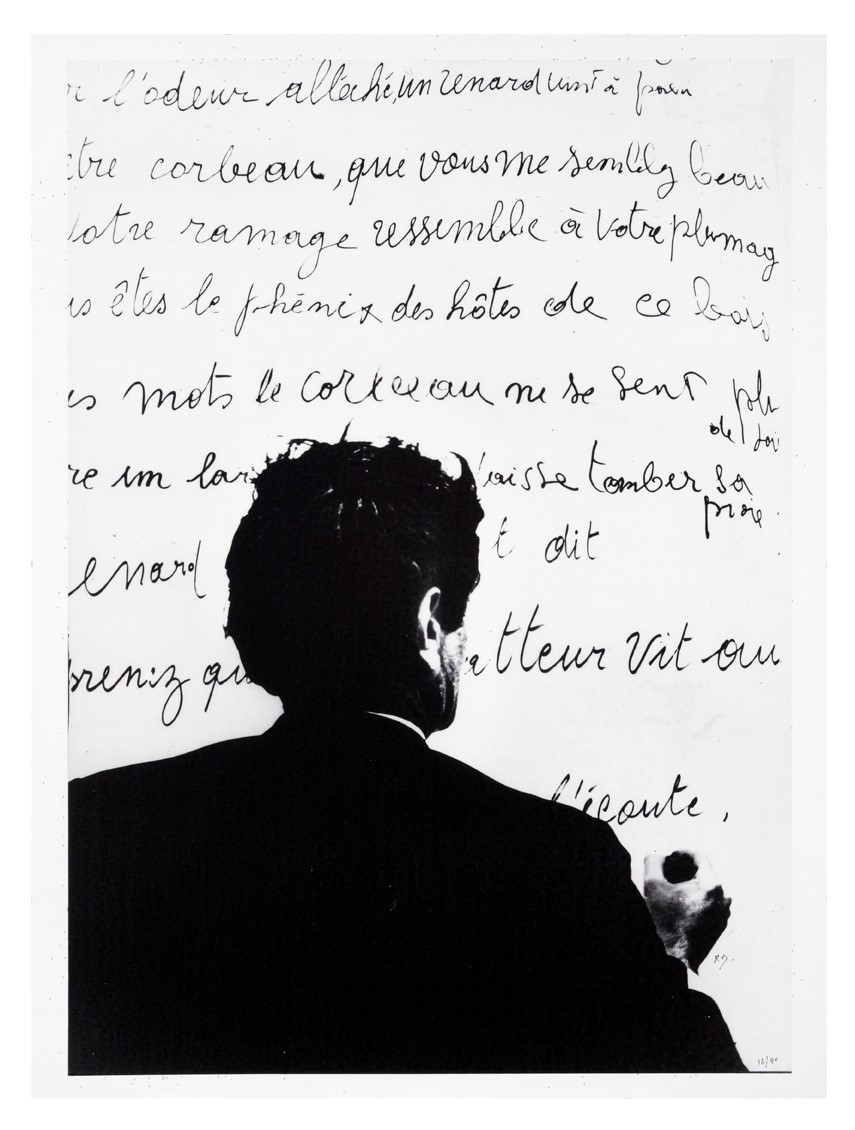 r l'odeur alléché, un renard vint à
tre corbeau, que vous me semblez beau
otre ramage ressemble à votre plumag
us êtes le phénix des hôtes de ce bois
es mots le corbeau ne se sent plu
de joi
re un lar laisse tomber sa
proie
enard t dit
prenez qu atteur vit au
l'écoute,
12/90